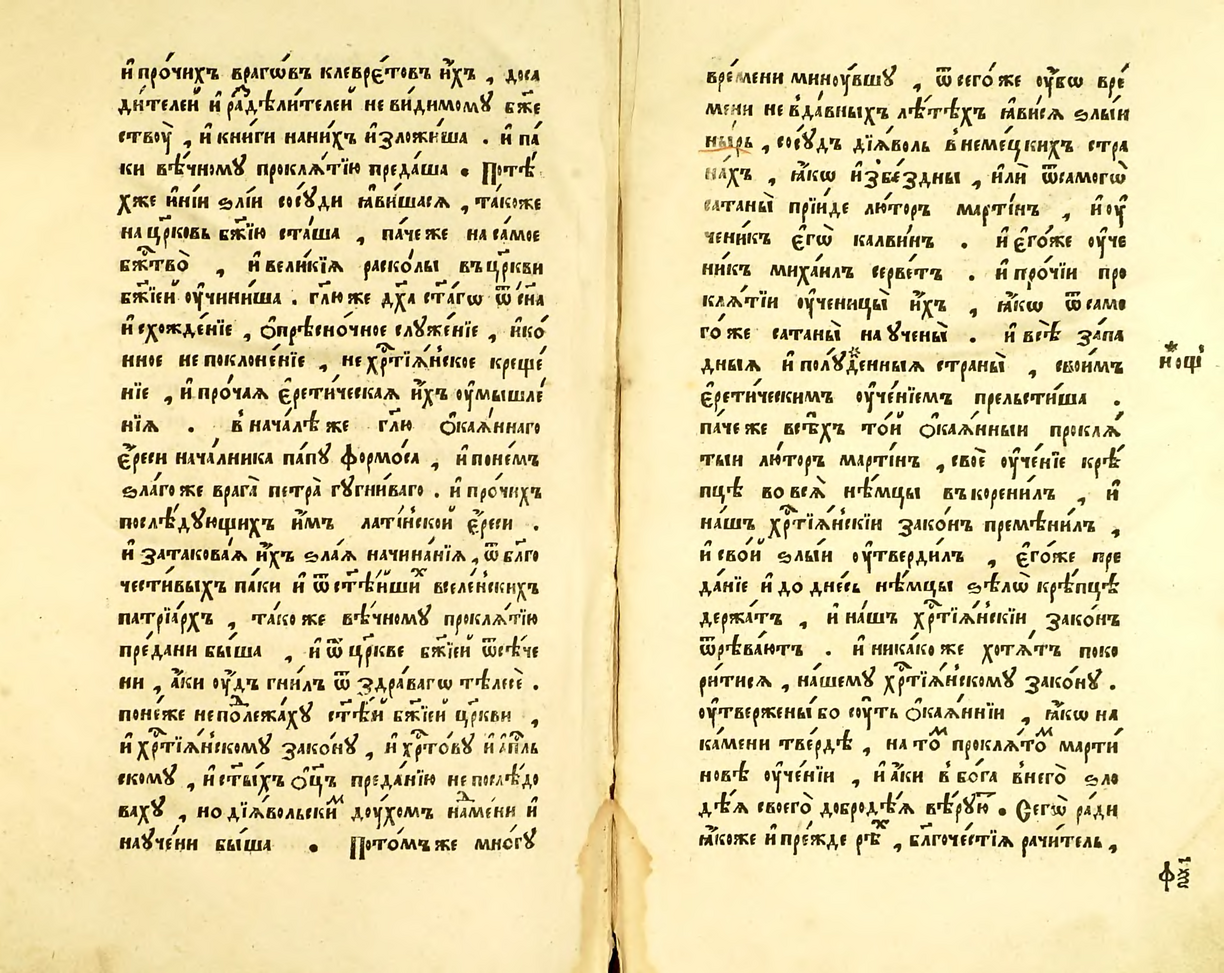 и҆ про́чихъ враго́въ клевре́товъ и҆́хъ , доса
ди́телей и҆ раⷥдѣли́телей неви́димомꙋ бж҃е
ствоу̀ , и҆ книги нани́хъ и҆зложи́ша . и҆ па́
ки вѣ́чномꙋ прокля́тїю преда́ша • Потѣ́
хже и҆ні́и ѕлі́и сосꙋ́ди ꙗ҆ви́шася , та́коже
на цр҃ковь бж҃їю ста́ша , па́че же на самое
бж҃тво̀ , и҆ вели́кїя раско́лы въ цр҃кви
бж҃їей оу҆чини́ша . гл҃ю же дх҃а ст҃а́гѡ ѿ сн҃а
и҆ схожде́нїе , ѻ҆прѣсно́чное слꙋже́нїе , и҆ко́
нное непоклоне́нїе , не хрⷭ҇тїѧ́нское креще́
нїе , и҆ про́чая є҆рети́ческая и҆́хъ оу҆мышле́
нїя . в нача́лѣ же гл҃ю ѻ҆кая́ннаго
є҆́реси нача́лника па́пꙋ формо́са , и҆ по не́мъ
ѕла́го же врага̀ петра̀ гꙋгни́ваго . и҆ про́чихъ
послѣ́дꙋющихъ и҆̀мъ лати́нской є҆́реси .
и҆ за такова́я и҆́хъ ѕла́я начина́нїя , ѿ бл҃го
чести́выхъ па́ки и҆ ѿ ст҃ѣ́йшиⷯ вселе́нскихъ
патрїа́рхъ , та́коже вѣ́чномꙋ прокля́тїю
пре́дани бы́ша , и҆ ѿ цр҃кве бж҃їей ѿсѣ́че
ни , а҆́ки оу҆́дъ гни́лъ ѿ здра́вагѡ тѣлесѐ .
поне́же неполежа́хꙋ ст҃ѣ́й бж҃їей цр҃кви ,
и҆ хрⷭ҇тїѧ́нскомꙋ зако́нꙋ , и҆ хр҃то́вꙋ и҆ а҆пⷭ҇ль
скомꙋ , и҆ ст҃ы́хъ ѻ҆ц҃ъ преда́нїю непослѣ́до
вахꙋ , но дїя́вольскиⷨ дꙋ́хомъ надме́ни и҆
наꙋче́ни бы́ша • Пото́мъ же мно́гꙋ
вре́мени миноу́вшꙋ , ѿ сего́ же оу҆́бѡ вре́
мени не вда́вныхъ лѣ́тѣхъ ꙗ҆ви́ся ѕлы́и
ны́рь , сосꙋ́дъ дїя́воль в неме́цкихъ стра
на́хъ , ꙗ҆́кѡ и҆з бе́здны , и҆лѝ ѿ самогѡ̀
сатаны̀ прїи́де лю́торъ марти́нъ , и҆ оу҆
чени́къ є҆гѡ̀ калви́нъ . и҆ є҆го́же оу҆че
ни́къ михаи́лъ серве́тъ . и҆ про́чїи про
кля́тїи оу҆ченицы̀ и҆́хъ , ꙗ҆́кѡ ѿ само
го́ же сатаны̀ наꙋчены̀ . и҆ всѣ̀ за́па
дныя и҆ полꙋ́*денныя страны̀ , свои́мъ
є҆рети́ческимъ оу҆че́нїемъ прельсти́ша .
па́че же всѣ́хъ то́й ѻ҆кая́нныи прокля́
тыи лю́торъ марти́нъ , своѐ оу҆че́нїе крѣ́
пцѣ во вся̀ нѣ́мцы въкорени́лъ , и҆
на́шъ хрⷭ҇тїѧ́нскїи зако́нъ премѣни́лъ ,
и҆ сво́й ѕлы́и оу҆тверди́лъ , є҆го́же пре
да́нїе и҆ до дне́сь нѣ́мцы ѕѣлѡ̀ крѣ́пцѣ
держа́тъ , и҆ на́шъ хрⷭ҇тїѧ́нскїи зако́нъ
ѿрѣва́ютъ . и҆ ника́ко же хотя́тъ поко
ри́тися , на́шемꙋ хрⷭ҇тїѧ́нскомꙋ зако́нꙋ .
оу҆твержены́ бо соу́ть ѻ҆кая́ннїи , ꙗ҆́кѡ на
ка́мени тве́рдѣ , на тоⷨ прокля́тоⷨ марти́
новѣ оу҆че́нїи , и҆ а҆́ки в бо́га в него̀ ѕло
дѣ́я своего̀ добродѣ́я вѣ́рꙋюⷮ • Сегѡ̀ ра́ди
ꙗ҆́коже и҆ пре́жде рѣⷯ , бл҃гоче́стїя рачи́тель ,
* и҆ нощ
ф҃